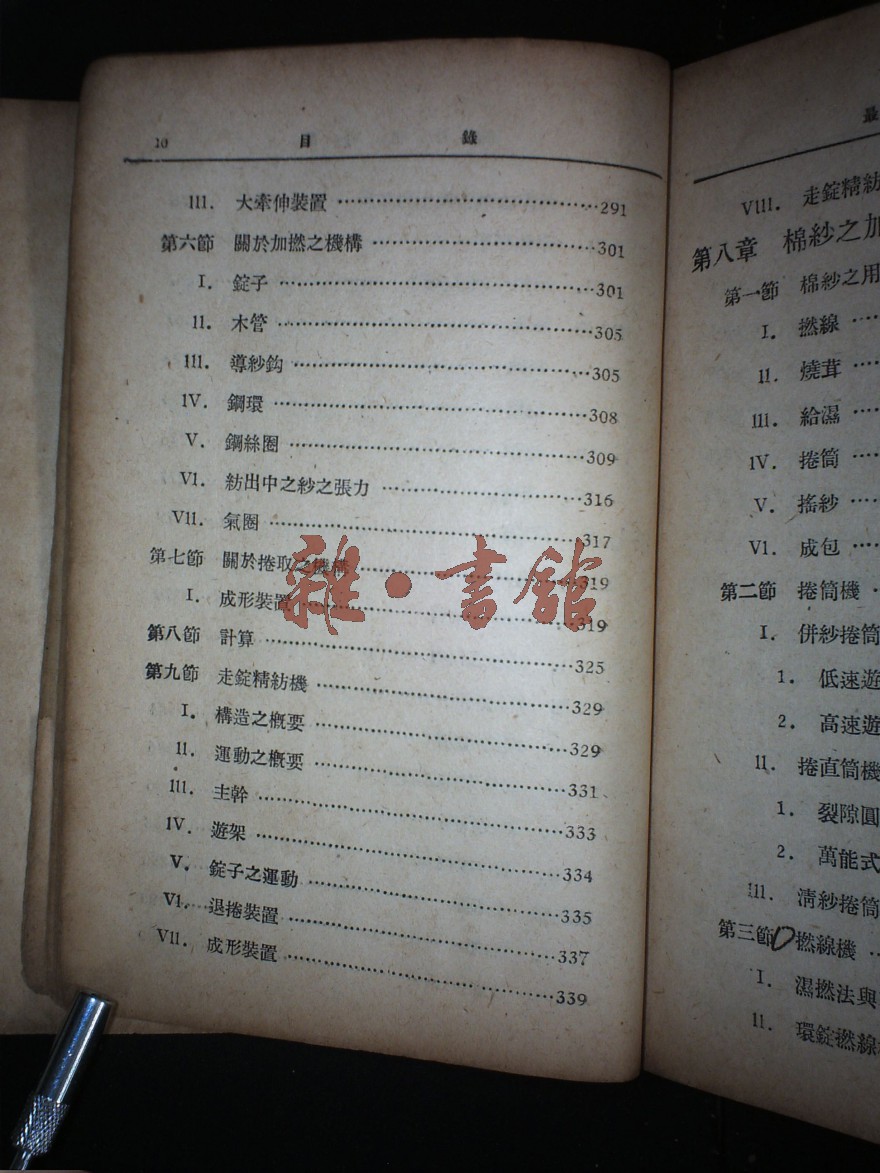 10 目 錄
III. 大牽伸裝置 ……291
第六節 關於加撚之機構 ……301
I. 錠子 ……301
II. 木管 ……305
III. 導紗鈎 ……305
IV. 鋼環 ……308
V. 鋼絲圈 ……309
VI. 紡出中之紗之張力 ……316
VII. 氣圈 ……317
第七節 關於捲取之機構 ……319
I. 成形裝置 ……319
第八節 計算 ……325
第九節 走錠精紡機 ……329
I. 構造之概要 ……329
II. 運動之概要 ……331
III. 主幹 ……333
IV. 遊架 ……334
V. 錠子之運動 ……335
VI. 退捲裝置 ……337
VII. 成形裝置 ……339
雜·書館
最
VIII. 走錠精紡
第八章 棉紗之加
第一節 棉紗之用
I. 撚線 ……
II. 燒茸 ……
III. 給濕 ……
IV. 捲筒 ……
V. 搖紗 ……
VI. 成包 ……
第二節 捲筒機
I. 併紗捲筒
1. 低速遊
2. 高速遊
II. 捲直筒機
1. 裂隙圓
2. 萬能式
III. 淸紗捲筒
第三節 撚線機 ……
I. 濕撚法與
II. 環錠撚線